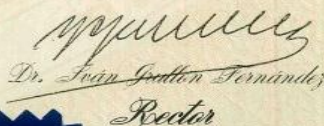 Dr. Iván Grullón Fernández
Rector